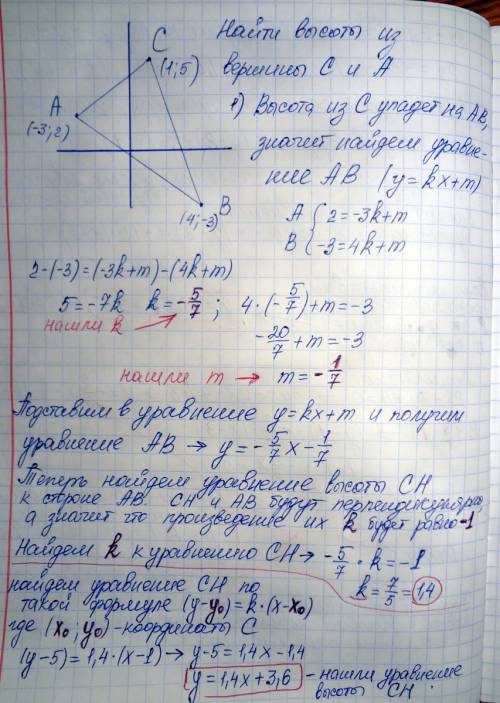 Найти высоты из
вершины C и A
C
(1;5)
A
(-3;2)
B
(4;-3)
1) Высота из C упадет на AB,
значит найдем уравне-
ние AB (y=kx+m)
A { 2=-3k+m
B { -3=4k+m
2-(-3)=(-3k+m)-(4k+m)
5=-7k k=-5/7 ; 4·(-5/7)+m=-3
нашли k
-20/7+m=-3
нашли m → m=-1/7
Подставим в уравнение y=kx+m и получим
уравнение AB → y=-5/7x-1/7
Теперь найдем уравнение высоты CH
к стороне AB. CH и AB будут перпендикулярны,
а значит что произведение их k будет равно -1
Найдем k к уравнению CH → -5/7·k=-1
k=7/5=1,4
найдем уравнение CH по
такой формуле (y-y₀)=k·(x-x₀)
где (x₀;y₀)-координаты C
(y-5)=1,4·(x-1) → y-5=1,4x-1,4
y=1,4x+3,6 - нашли уравнение
высоты CH.